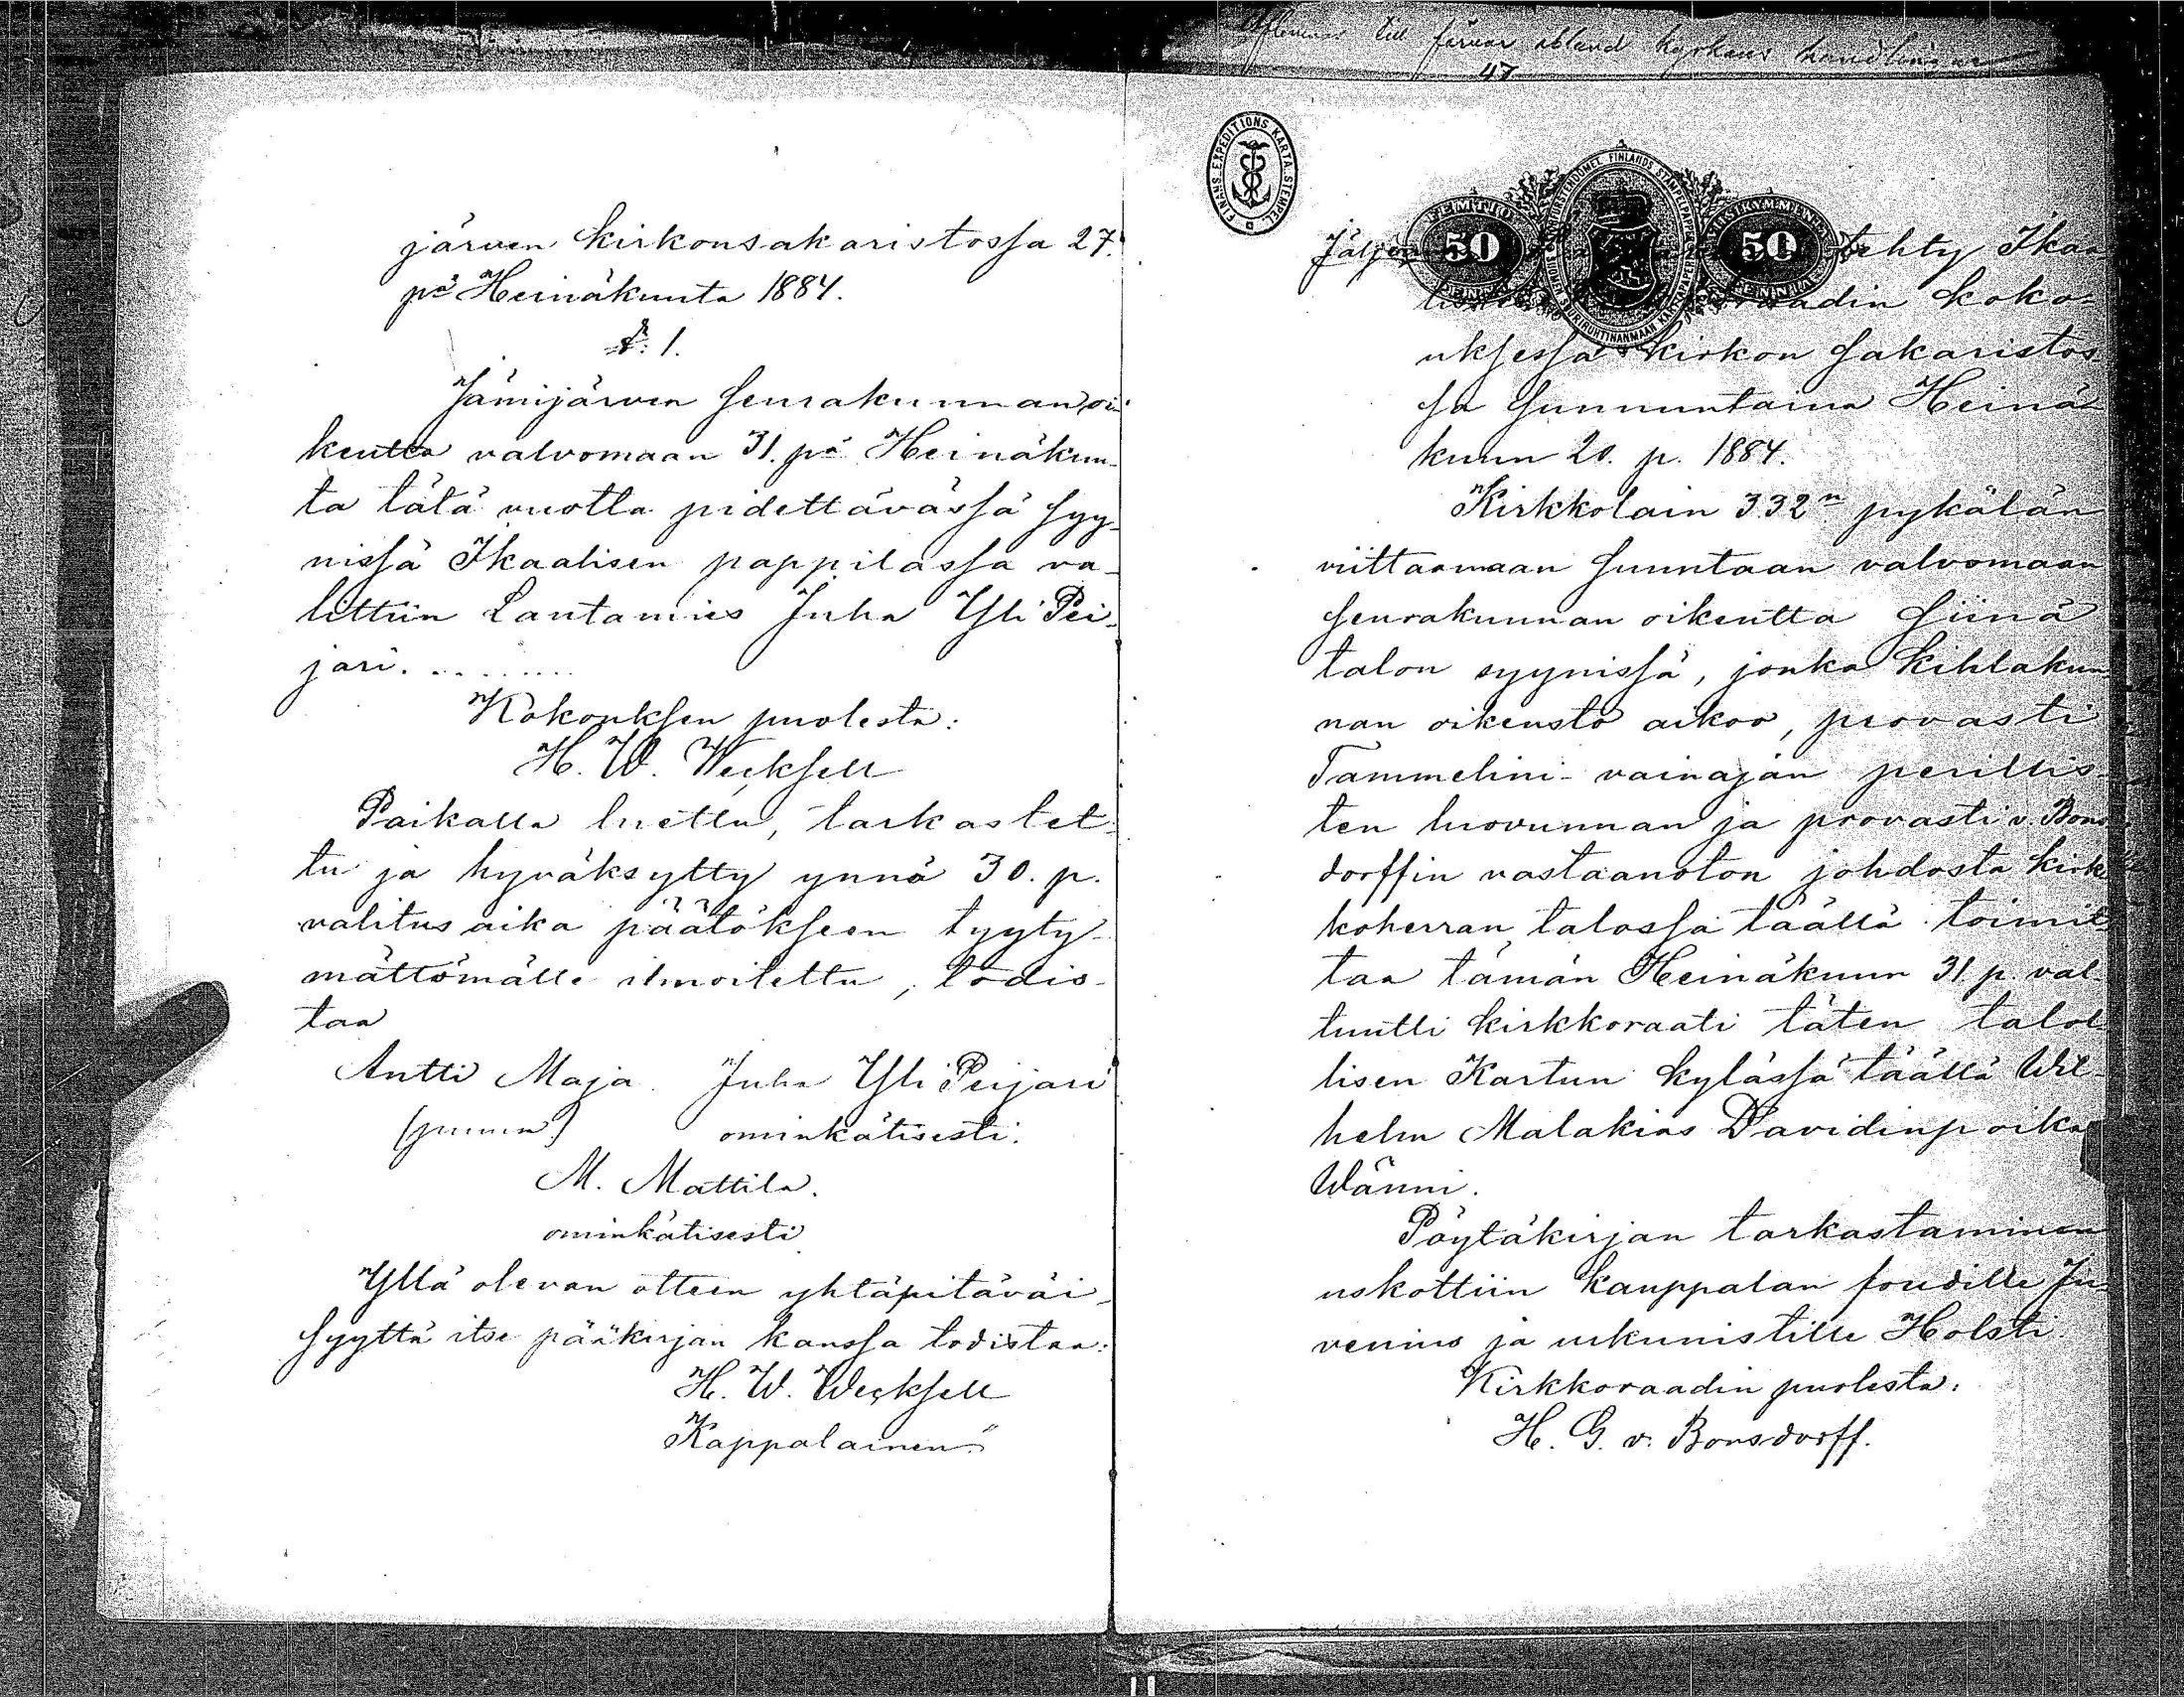 järven kirkonsakaristossa 27.
pä Heinäkuuta 1884.
§. 1.
Jämijärven seurakunnan oi-
keutta valvomaan 31. pä Heinäkuu-
ta tätä vuotta pidettävässä syy-
nissä Ikaalisen pappilassa va-
littiin Lautamies Juha Yli Pei-
jari. ........
Kokouksen puolesta:
H. W. Wecksell
Paikalla luettu, tarkastet-
tu ja hyväksytty ynnä 30. p.
valitus aika päätökseen tyyty-
mättömälle ilmoitettu, todis-
taa
Antti Maja. Juha Yli Peijari
(puum.) ominkätisesti.
M. Mattila.
ominkätisesti
Yllä olevan otteen yhtäpitäväi-
syyttä itse pääkirjan kanssa todistaa:
H. W. Wecksell
Kappalainen."
till kyrkans handlingar
47
FINANS-EXPEDITIONS KARTA STEMPEL.
FEMTIO
50
FINLANDS
50
tehty Ikaa-
raadin koko-
uksessa kirkon sakaristos-
sa sunnuntaina Heinä-
kuun 20. p. 1884.
Kirkkolain 332n pykälän
viittaamaan suuntaan valvomaan
seurakunnan oikeutta siinä
talon syynissä, jonka kihlakun-
nan oikeusto aikoo, provasti
Tammelini- vainajan perillis-
ten luovunnan ja provasti v. Bons-
dorffin vastaanoton johdosta kirk-
koherran talossa täällä toimit-
taa tämän Heinäkuun 31. p. val-
tuutti kirkkoraati täten talol-
lisen Kartun kylässä täällä Wil-
helm Malakias Davidinpoika
Wänni.
Pöytäkirjan tarkastaminen
uskottiin kauppalan foudille Ju-
venius ja urkunistille Holsti
Kirkkoraadin puolesta:
H. G. v. Bonsdorff.